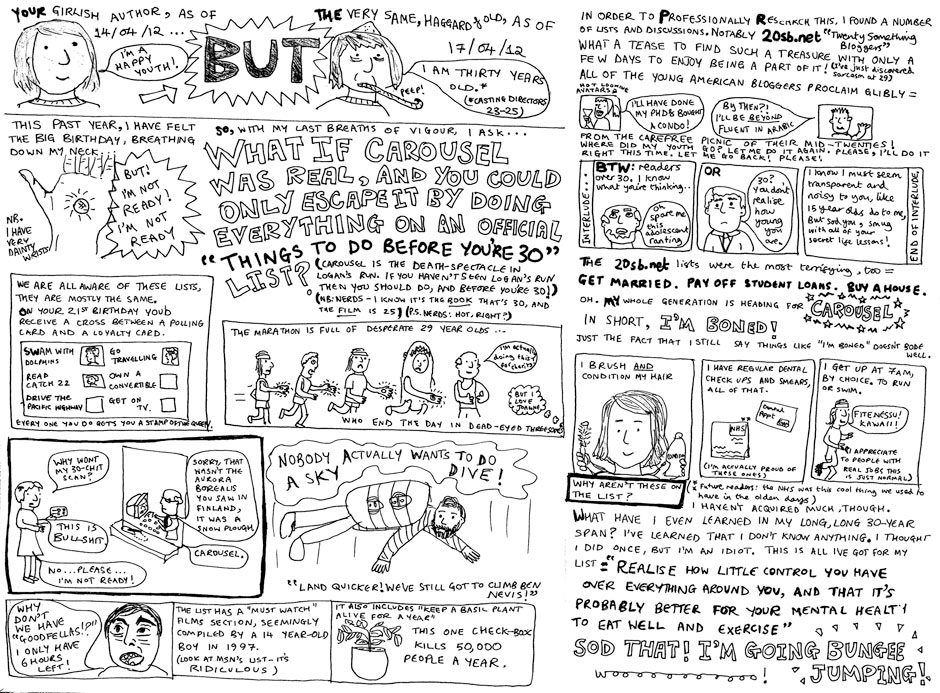 YOUR GIRLISH AUTHOR, AS OF
14/04/12 ...
I'M A
HAPPY
YOUTH!
BUT
THE VERY SAME, HAGGARD & OLD, AS OF
17/04/12
PEEP!
I AM THIRTY YEARS
OLD.*
(*CASTING DIRECTORS
23-25)
THIS PAST YEAR, I HAVE FELT
THE BIG BIRTHDAY, BREATHING
DOWN MY NECK...
BUT!
I'M NOT
READY!
I'M NOT
READY
NB.
I HAVE
VERY
DAINTY
WRISTS
SO, WITH MY LAST BREATHS OF VIGOUR, I ASK...
WHAT IF CAROUSEL
WAS REAL, AND YOU COULD
ONLY ESCAPE IT BY DOING
EVERYTHING ON AN OFFICIAL
"THINGS TO DO BEFORE YOU'RE 30"
LIST?
(CAROUSEL IS THE DEATH-SPECTACLE IN
LOGAN'S RUN. IF YOU HAVEN'T SEEN LOGAN'S RUN
THEN YOU SHOULD DO, AND BEFORE YOU'RE 30!)
(NB: NERDS - I KNOW IT'S THE BOOK THAT'S 30, AND
THE FILM IS 25) (P.S. NERDS: HOT, RIGHT?)
WE ARE ALL AWARE OF THESE LISTS,
THEY ARE MOSTLY THE SAME.
ON YOUR 21ST BIRTHDAY YOU'D
RECEIVE A CROSS BETWEEN A POLLING
CARD AND A LOYALTY CARD.
SWAM WITH
DOLPHINS
GO
TRAVELLING
READ
CATCH 22
OWN A
CONVERTIBLE
DRIVE THE
PACIFIC HIGHWAY
GET ON
TV.
EVERY ONE YOU DO GETS YOU A STAMP OF THE QUEEN!
THE MARATHON IS FULL OF DESPERATE 29 YEAR OLDS ...
I'm actually
doing this
for charity
BUT I
LOVE
WHO END THE DAY IN DEAD-EYED THREESOMES
WHY WON'T
MY 30-CHIT
SCAN?
THIS IS
BULLSHIT.
NO... PLEASE...
I'M NOT READY!
SORRY, THAT
WASN'T THE
AURORA
BOREALIS
YOU SAW IN
FINLAND,
IT WAS A
SNOW PLOUGH.
CAROUSEL.
NOBODY ACTUALLY WANTS TO DO
A SKY DIVE!
"LAND QUICKER! WE'VE STILL GOT TO CLIMB BEN
NEVIS!"
WHY
DON'T
WE HAVE
"GOODFELLAS!?"
I ONLY HAVE
6 HOURS
LEFT!
THE LIST HAS A "MUST WATCH"
FILMS SECTION, SEEMINGLY
COMPILED BY A 14 YEAR-OLD
BOY IN 1997.
(LOOK AT MSN'S LIST - IT'S
RIDICULOUS)
IT ALSO INCLUDES "KEEP A BASIL PLANT
ALIVE FOR A YEAR"
THIS ONE CHECK-BOX
KILLS 50,000
PEOPLE A YEAR.
IN ORDER TO PROFESSIONALLY RESEARCH THIS, I FOUND A NUMBER
OF LISTS AND DISCUSSIONS. NOTABLY 20sb.net "Twenty Something
Bloggers"
WHAT A TEASE TO FIND SUCH A TREASURE WITH ONLY A
FEW DAYS TO ENJOY BEING A PART OF IT! (I've just discovered
sarcasm at 29)
ALL OF THE YOUNG AMERICAN BLOGGERS PROCLAIM GLIBLY =
AVATARS
I'LL HAVE DONE
MY PHD & BOUGHT
A CONDO!
BY THEN?!
I'LL BE BEYOND
FLUENT IN ARABIC
FROM THE CAREFREE PICNIC OF THEIR MID-TWENTIES!
WHERE DID MY YOUTH GO? LET ME DO IT AGAIN. PLEASE, I'LL DO IT
RIGHT THIS TIME. LET ME GO BACK! PLEASE!
INTERLUDE...
BTW: readers
over 30, I know
what you're thinking...
oh
spare me
this
adolescent
ranting
OR
30?
you don't
realise
how
young
you
are.
I know I must seem
transparent and
noisy to you, like
15 year olds do to me,
But sod you, smug
with all of your
secret life lessons!
END OF INTERLUDE
THE 20sb.net lists were the most terrifying, too =
GET MARRIED. PAY OFF STUDENT LOANS. BUY A HOUSE.
OH. MY WHOLE GENERATION IS HEADING FOR CAROUSEL
IN SHORT, I'M BONED!
JUST THE FACT THAT I STILL SAY THINGS LIKE "I'M BONED" DOESN'T BODE
WELL.
I BRUSH AND
CONDITION MY HAIR
WHY AREN'T THESE ON
THE LIST?
I HAVE REGULAR DENTAL
CHECK UPS AND SMEARS,
ALL OF THAT.
NHS
Dental
Appt
(I'M ACTUALLY PROUD OF
THESE ONES)
I GET UP AT 7AM,
BY CHOICE, TO RUN
OR SWIM.
FITENESSU!
KAWAII!
(I APPRECIATE
TO PEOPLE WITH
REAL JOBS THIS
IS JUST NORMAL)
(* Future readers: the NHS was this cool thing we used to
have in the olden days)
I HAVEN'T ACQUIRED MUCH, THOUGH.
WHAT HAVE I EVEN LEARNED IN MY LONG, LONG 30-YEAR
SPAN? I'VE LEARNED THAT I DON'T KNOW ANYTHING. I THOUGHT
I DID ONCE, BUT I'M AN IDIOT. THIS IS ALL I'VE GOT FOR MY
LIST = "REALISE HOW LITTLE CONTROL YOU HAVE
OVER EVERYTHING AROUND YOU, AND THAT IT'S
PROBABLY BETTER FOR YOUR MENTAL HEALTH
TO EAT WELL AND EXERCISE"
SOD THAT! I'M GOING BUNGEE
JUMPING!